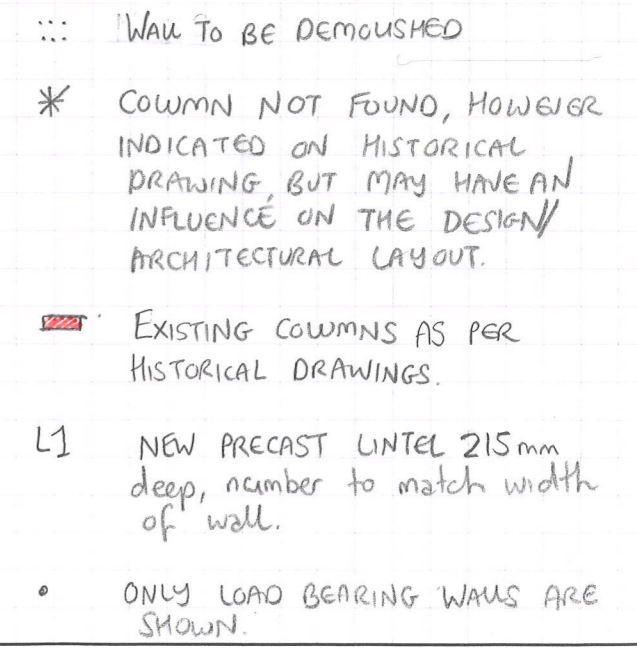 WALL TO BE DEMOLISHED
* COLUMN NOT FOUND, HOWEVER
INDICATED ON HISTORICAL
DRAWING, BUT MAY HAVE AN
INFLUENCE ON THE DESIGN/
ARCHITECTURAL LAYOUT.
EXISTING COLUMNS AS PER
HISTORICAL DRAWINGS.
L1 NEW PRECAST LINTEL 215mm
deep, number to match width
of wall.
• ONLY LOAD BEARING WALLS ARE
SHOWN.